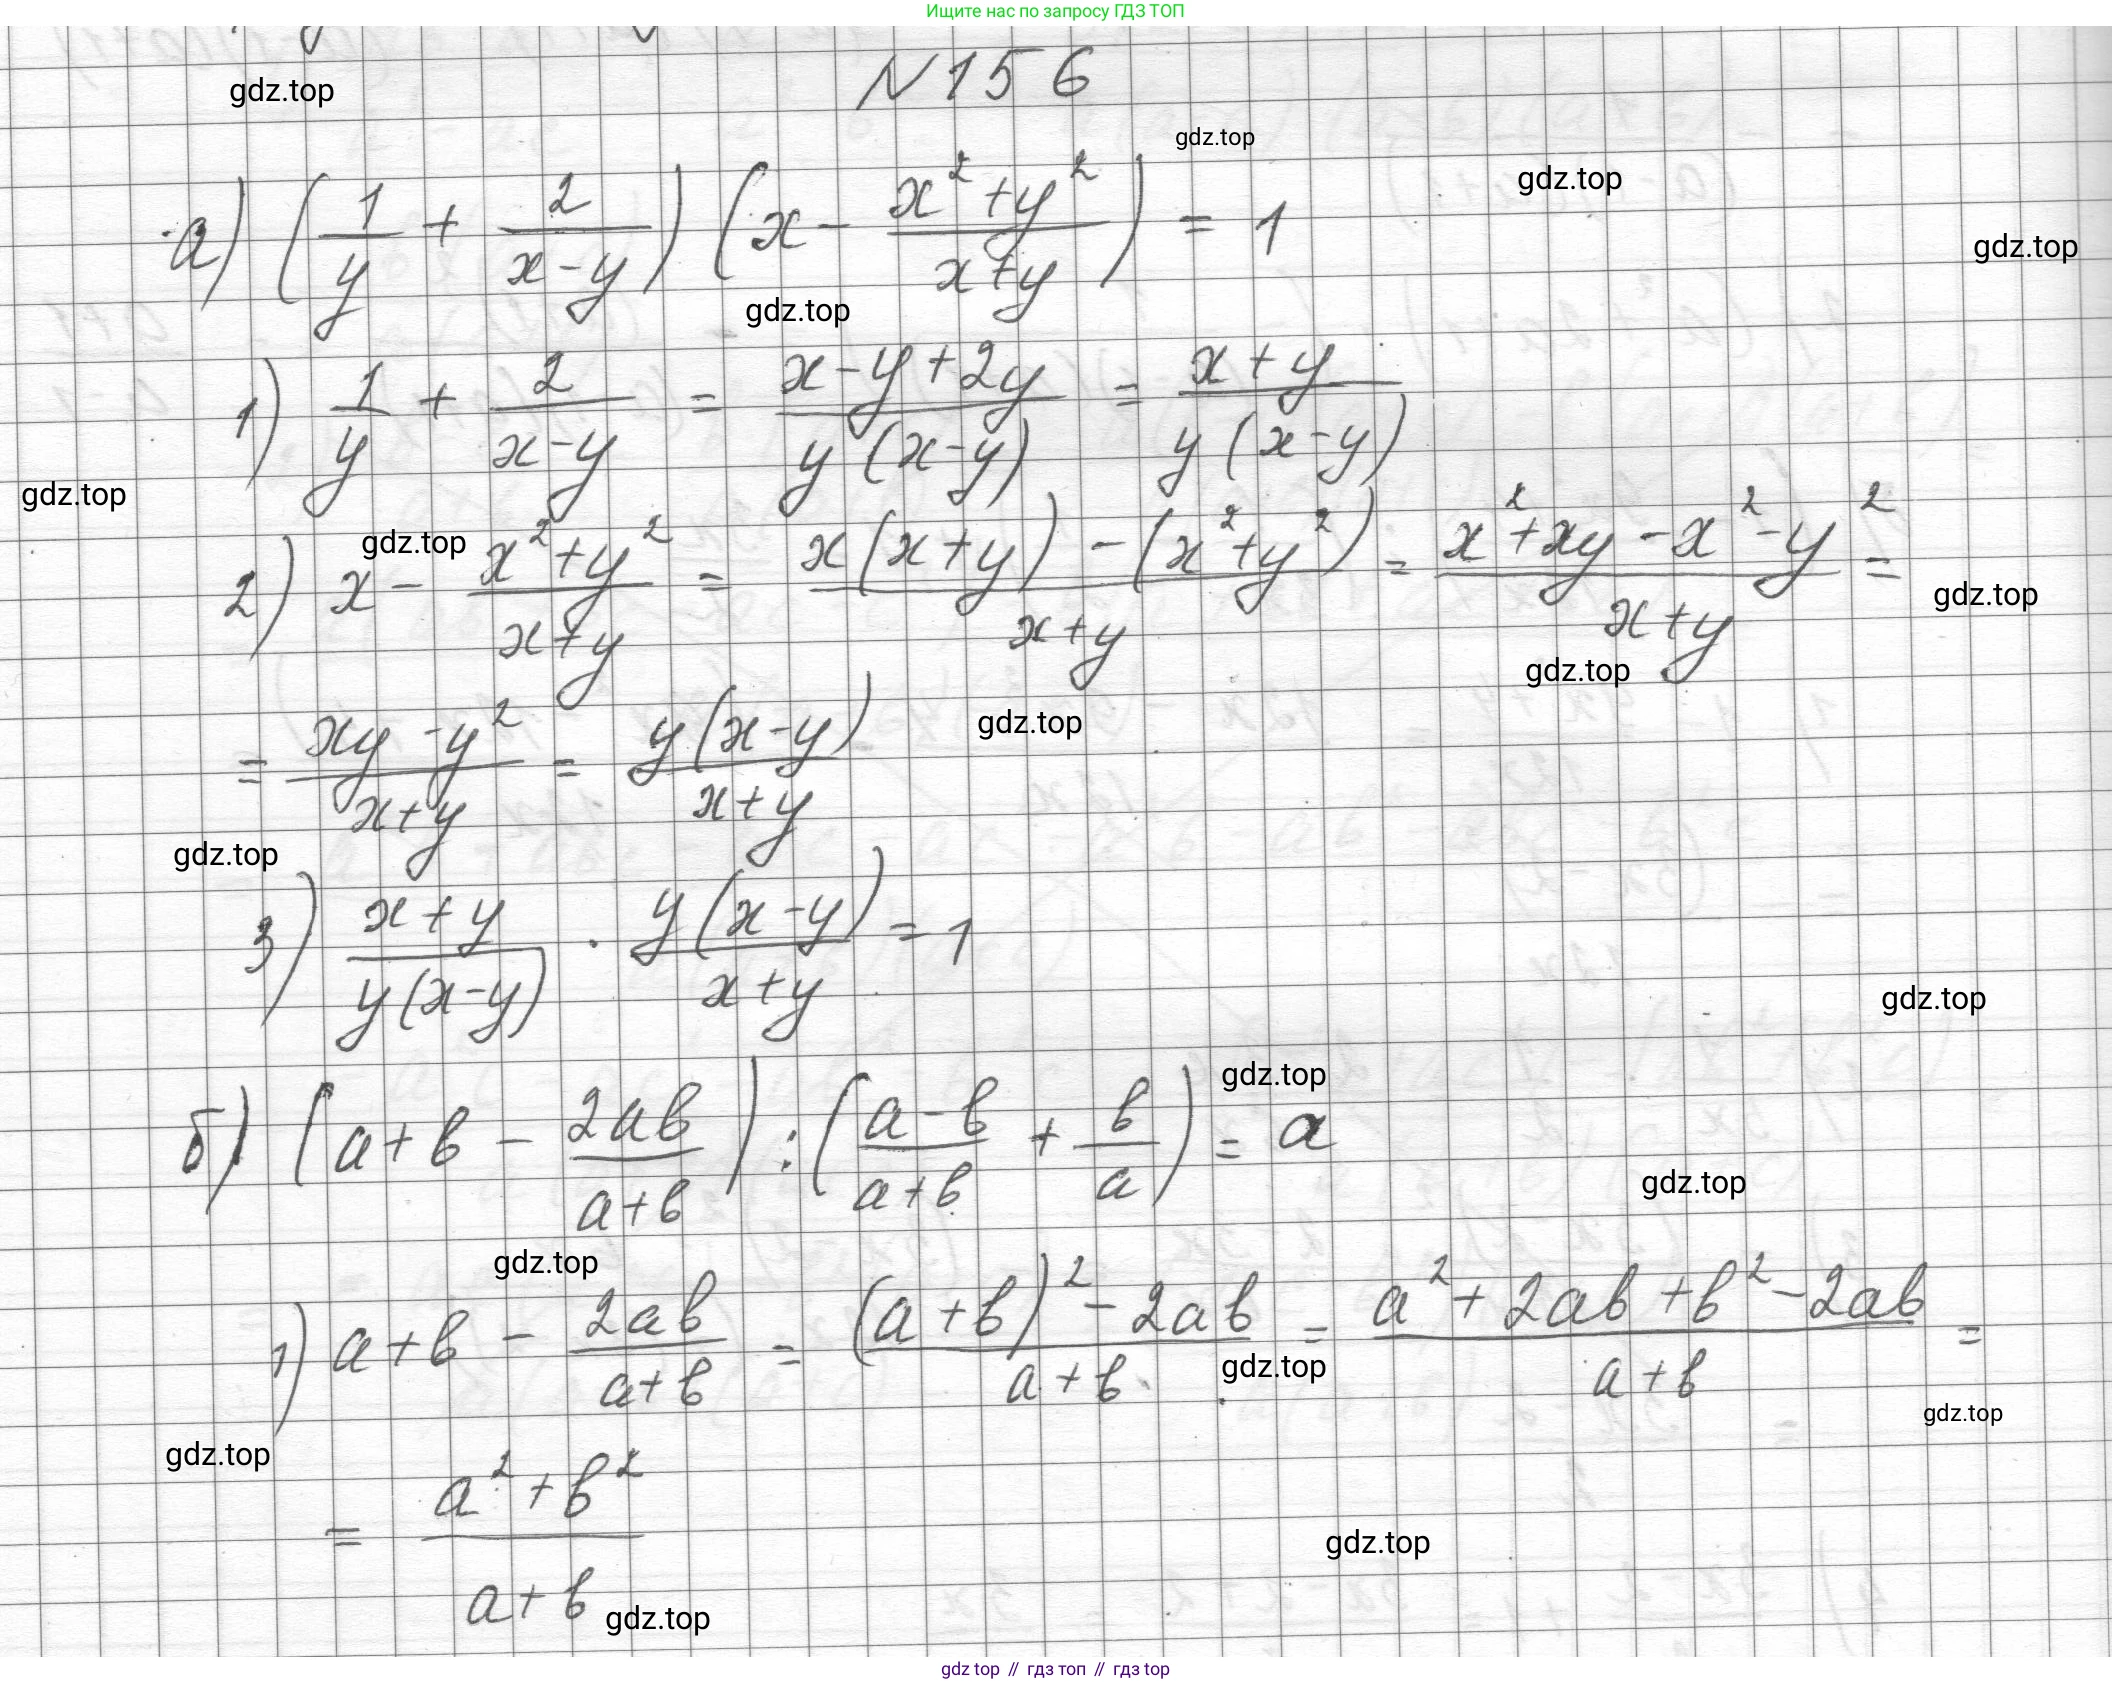 Ищите нас по запросу ГДЗ ТОП
N156
gdz.top
gdz.top
gdz.top
а) (1/y + 2/(x-y)) (x - (x²+y²)/(x+y)) = 1
gdz.top
gdz.top
1) 1/y + 2/(x-y) = (x-y+2y)/(y(x-y)) = (x+y)/(y(x-y))
gdz.top
gdz.top
2) x - (x²+y²)/(x+y) = (x(x+y)-(x²+y²))/(x+y) = (x²+xy-x²-y²)/(x+y) =
gdz.top
gdz.top
= (xy-y²)/(x+y) = (y(x-y))/(x+y)
gdz.top
gdz.top
3) (x+y)/(y(x-y)) · (y(x-y))/(x+y) = 1
gdz.top
gdz.top
б) (a+b - 2ab/(a+b)) : ((a-b)/(a+b) + b/a) = a
gdz.top
gdz.top
1) a+b - 2ab/(a+b) = ((a+b)²-2ab)/(a+b) = (a²+2ab+b²-2ab)/(a+b) =
gdz.top
gdz.top
gdz.top
= (a²+b²)/(a+b)
gdz.top
gdz.top
gdz top // гдз топ // гдз top